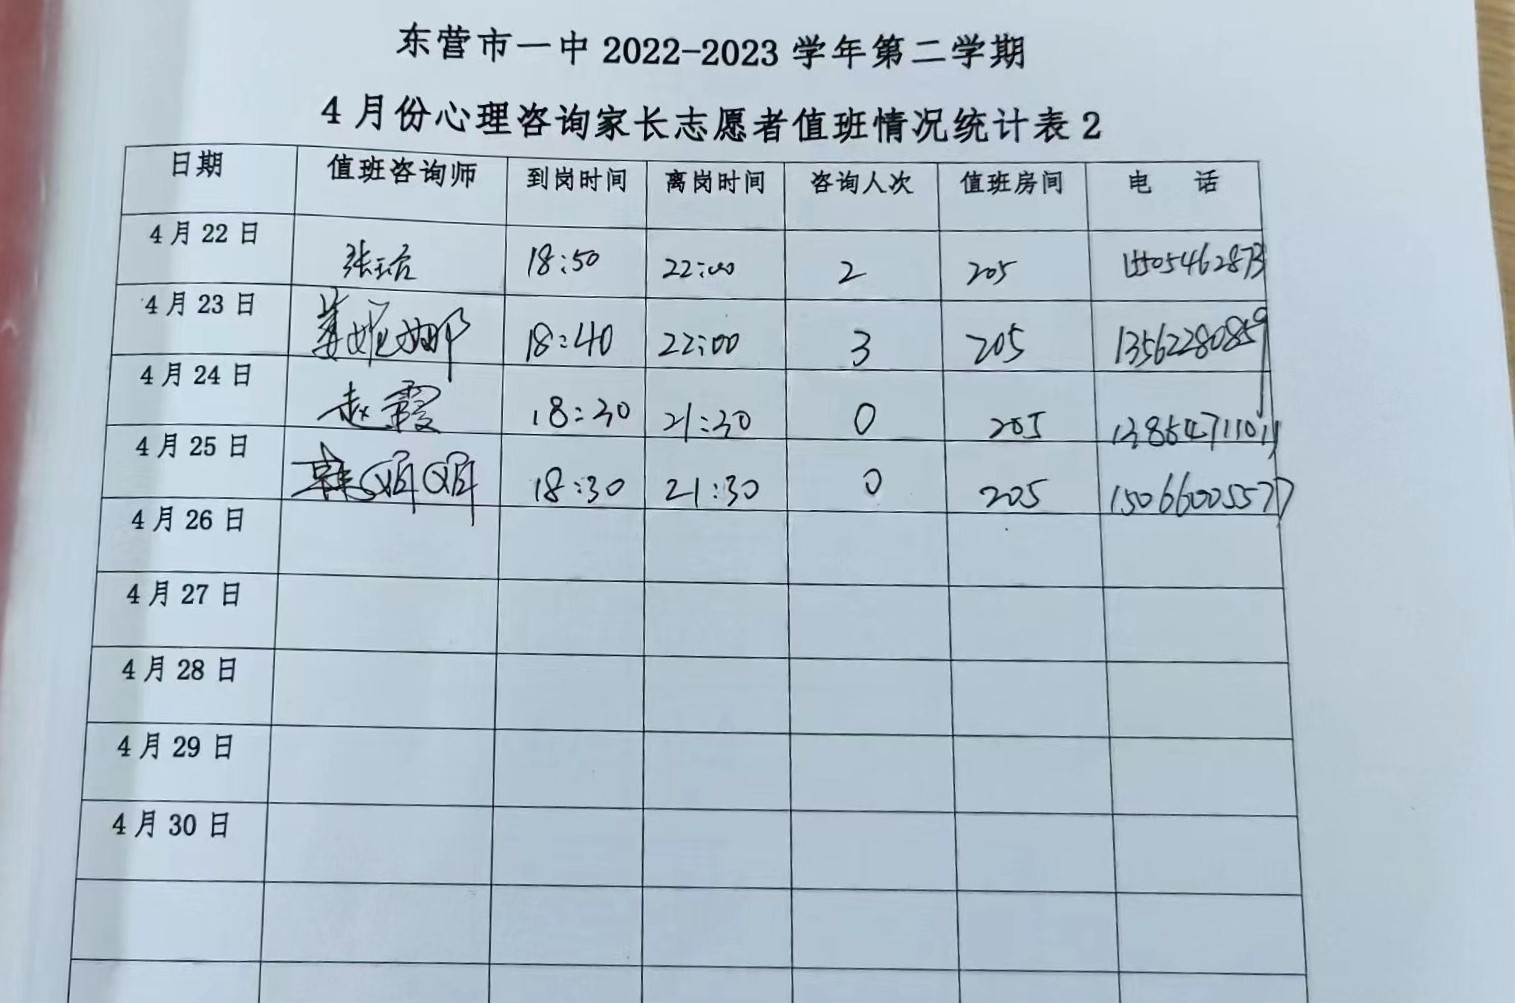 东营市一中 2022-2023 学年第二学期
4 月份心理咨询家长志愿者值班情况统计表 2
日期 值班咨询师 到岗时间 离岗时间 咨询人次 值班房间 电 话
4 月 22 日 18:50 22:00 2 205
4 月 23 日 姜妮娜 18:40 22:00 3 205 13562280859
4 月 24 日 赵霞 18:30 21:30 0 205
4 月 25 日 韩明明 18:30 21:30 0 205 15066005577
4 月 26 日
4 月 27 日
4 月 28 日
4 月 29 日
4 月 30 日